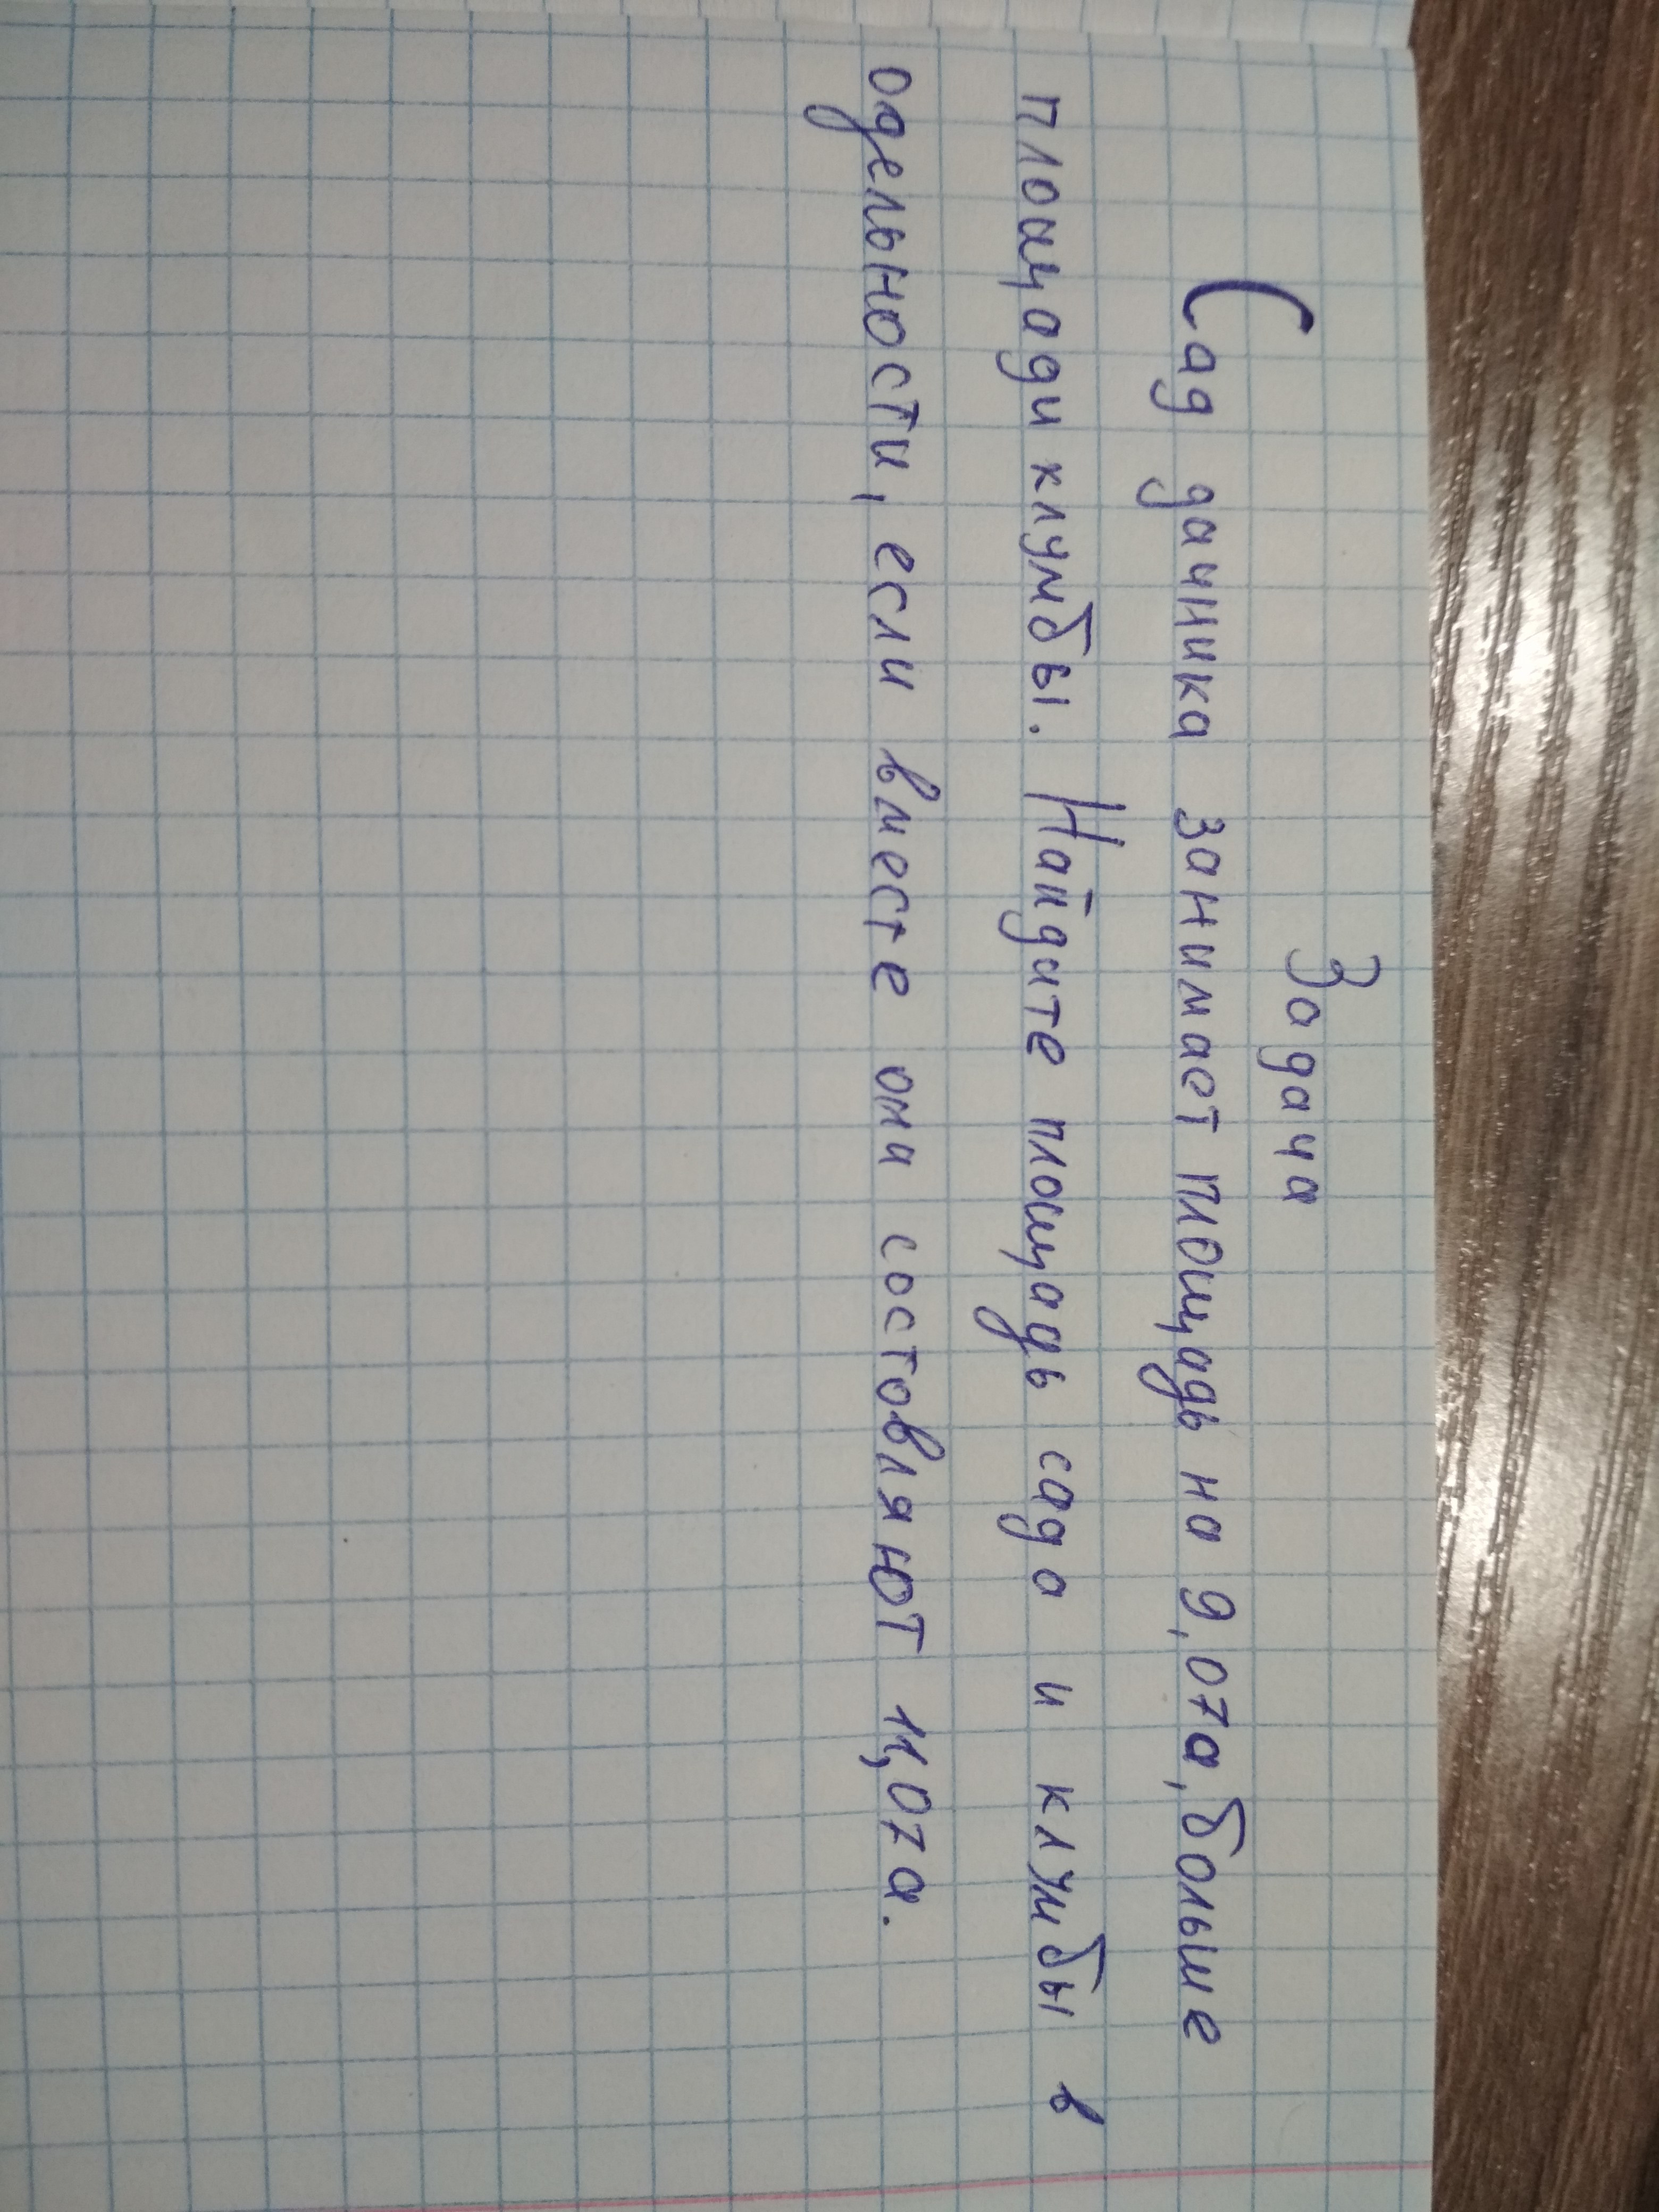 Задача
Сад дачника занимает площадь на 9,07а, больше
площади клумбы. Найдите площадь сада и клумбы в
одельности, если вместе они состовляют 11,07а.